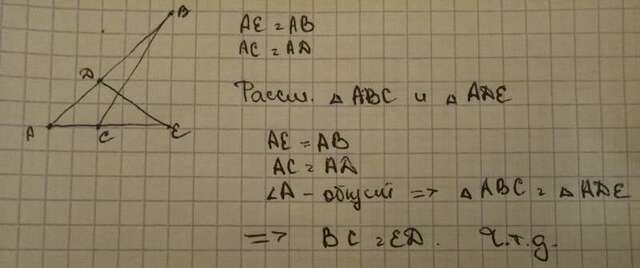 B
D
A C E
AE = AB
AC = AD
Рассм. △ ABC и △ ADE
AE = AB
AC = AD
∠A - общий => △ ABC = △ ADE
=> BC = ED. Ч.т.д.